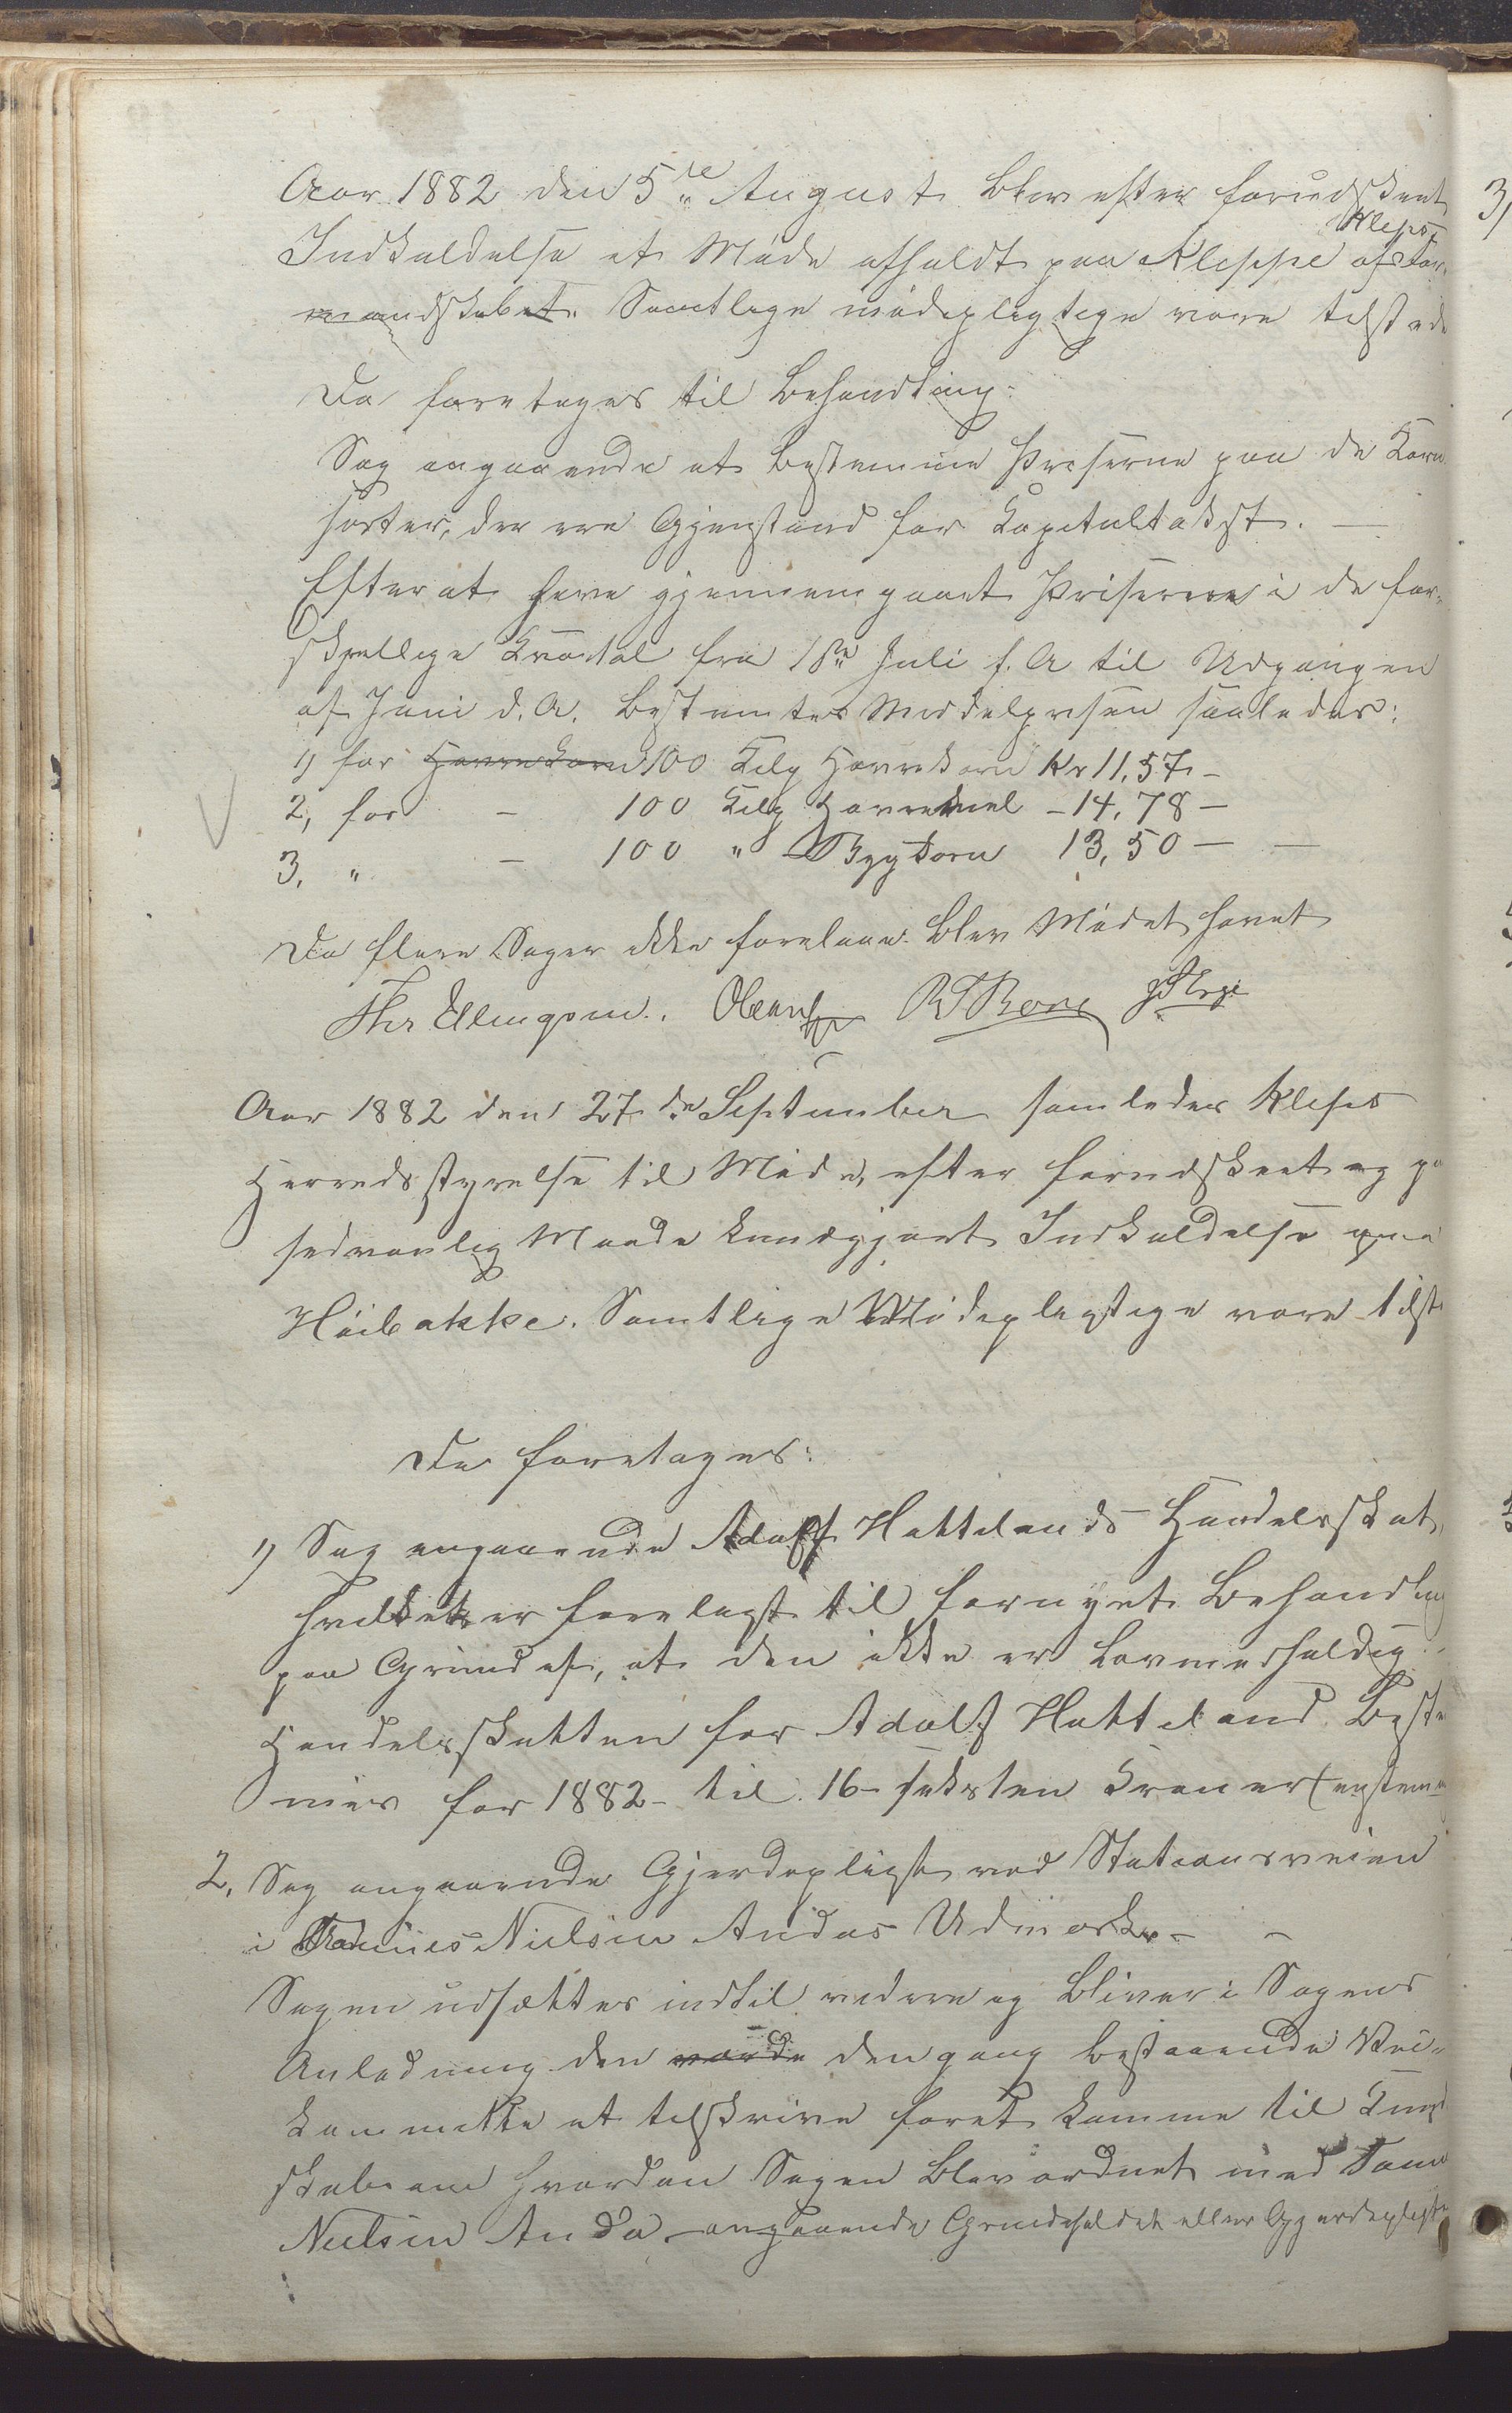 Aar 1882 den 5te August blev efter forudskeet
Indkaldelse et Møde afholdt paa Kleppe af Kleps For-
mandskabet. Samtlige mødepligtige vare tilstede
Da foretages til Behandling:
Sag angaaende at bestemme Priserne paa de Korn
sorter, der ere Gjenstand for Kapitultakst. —
Efter at have gjennemgaaet Priserne i de for-
skjellige Kvartal fra 1ste Juli f. A til Udgangen
af Juni d. A. bestemtes Middelprisen saaledes:
1) for Havrekorn 100 Kilg Havrekorn Kr 11,57 -
2, for - 100 Kilg Havremel - 14,78 -
3, " - 100 " Bygkorn 13,50 - -
Da flere Sager ikke forelaae blev Mødet hævet
Thr Ellingsen. R T Bore
Aar 1882 den 27de September samledes Kleps
Herredsstyrelse til Møde, efter forudskeet og pa
sedvanlig Maade kundgjort Indkaldelse paa
Høibakke. Samtlige Mødepligtige vare tilst
Da foretages:
1) Sag angaaende Adolf Hattelands Handelsskat,
hvilket er forelagt til fornyet Behandling
paa Grund af, at den ikke er Lovmedholdig.
Handelsskatten for Adolf Hatteland beste
mes for 1882 - til 16 - seksten Kroner (enstem
2, Sag angaaende Gjerdepligt ved Stationsveien
i Tønnes Nielsen Andas Udmark. -
Sagen udsættes indtil videre og bliver i Sagens
Anledning den varde dengang bestaaende Vei-
kommitte at tilskrive foret komme til Kund
skab om hvordan Sagen blev ordnet med Tønn
Nielsen Anda angaaende Grindeholdet eller Gjerdepligt